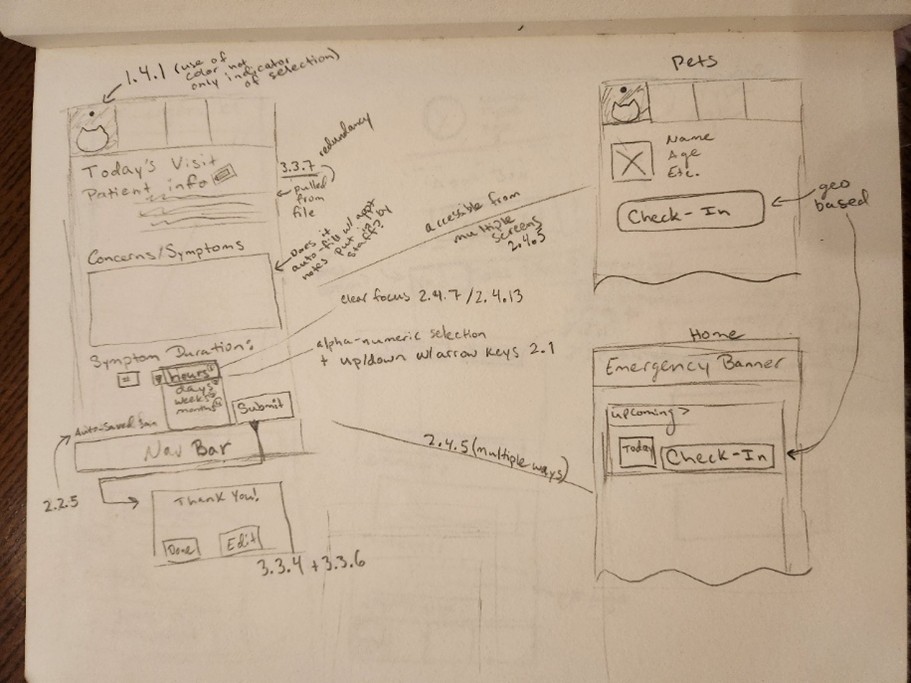 1.4.1 (use of
color not
only indicator
of selection)
Today's Visit
Patient info
3.3.7 redundancy
pulled
from
file
Concerns/Symptoms
Does it
auto-fill w/ appt
notes put in by
staff?
accessible from
multiple
screens
2.4.5
clear focus 2.4.7/2.4.13
alpha-numeric selection
+ up/down w/arrow keys 2.1
Symptom Duration:
hours
days
weeks
months
Submit
Auto-Saved
Nav Bar
2.2.5
Thank You!
Done
Edit
3.3.4 + 3.3.6
2.4.5 (multiple ways)
Pets
Name
Age
Etc.
Check-In
geo
based
Home
Emergency Banner
upcoming >
Today
Check-In